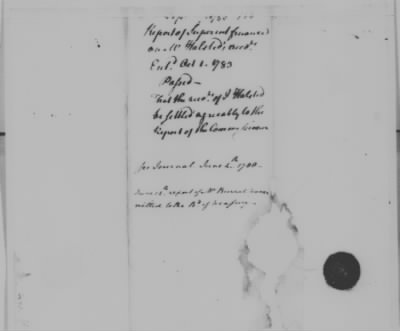 Report of Superint finance
on Mr Halsted's accts
Entd Oct 1. 1783
Passed —
That the accts of J Halsted
be settled agreeably to the
Report of the Commissioner
See Journal June 4th
June report of Mr Burral
mitted to the Bd of treasury —